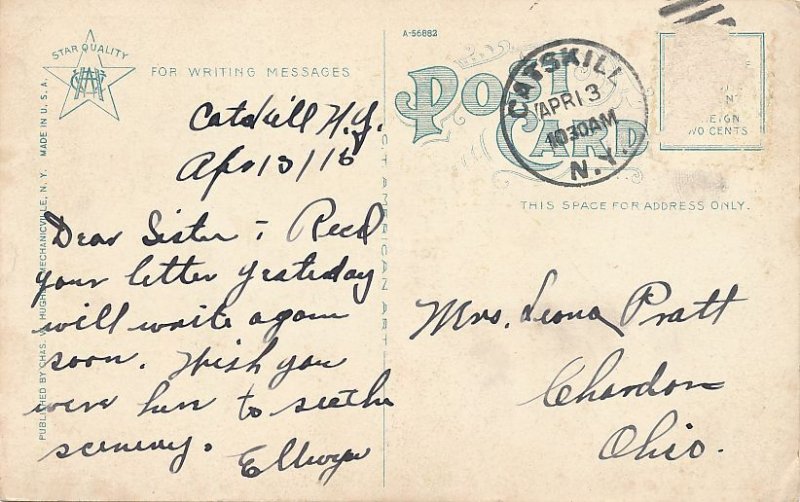 STAR QUALITY
CWH
MADE IN U.S.A.
PUBLISHED BY CHAS. W. HUGHES, MECHANICVILLE, N.Y.
FOR WRITING MESSAGES
Catskill N.Y.
Apr 13/15
Dear Sister - Recd
your letter yesterday
will write again
soon. Wish you
were here to see the
scenery.
Ellwyn
C.T. AMERICAN ART
A-56882
POST
CARD
CATSKILL
APR 13
1030AM
N.Y.
EIGN
WO CENTS
THIS SPACE FOR ADDRESS ONLY.
Mrs. Leona Pratt
Chardon
Ohio.